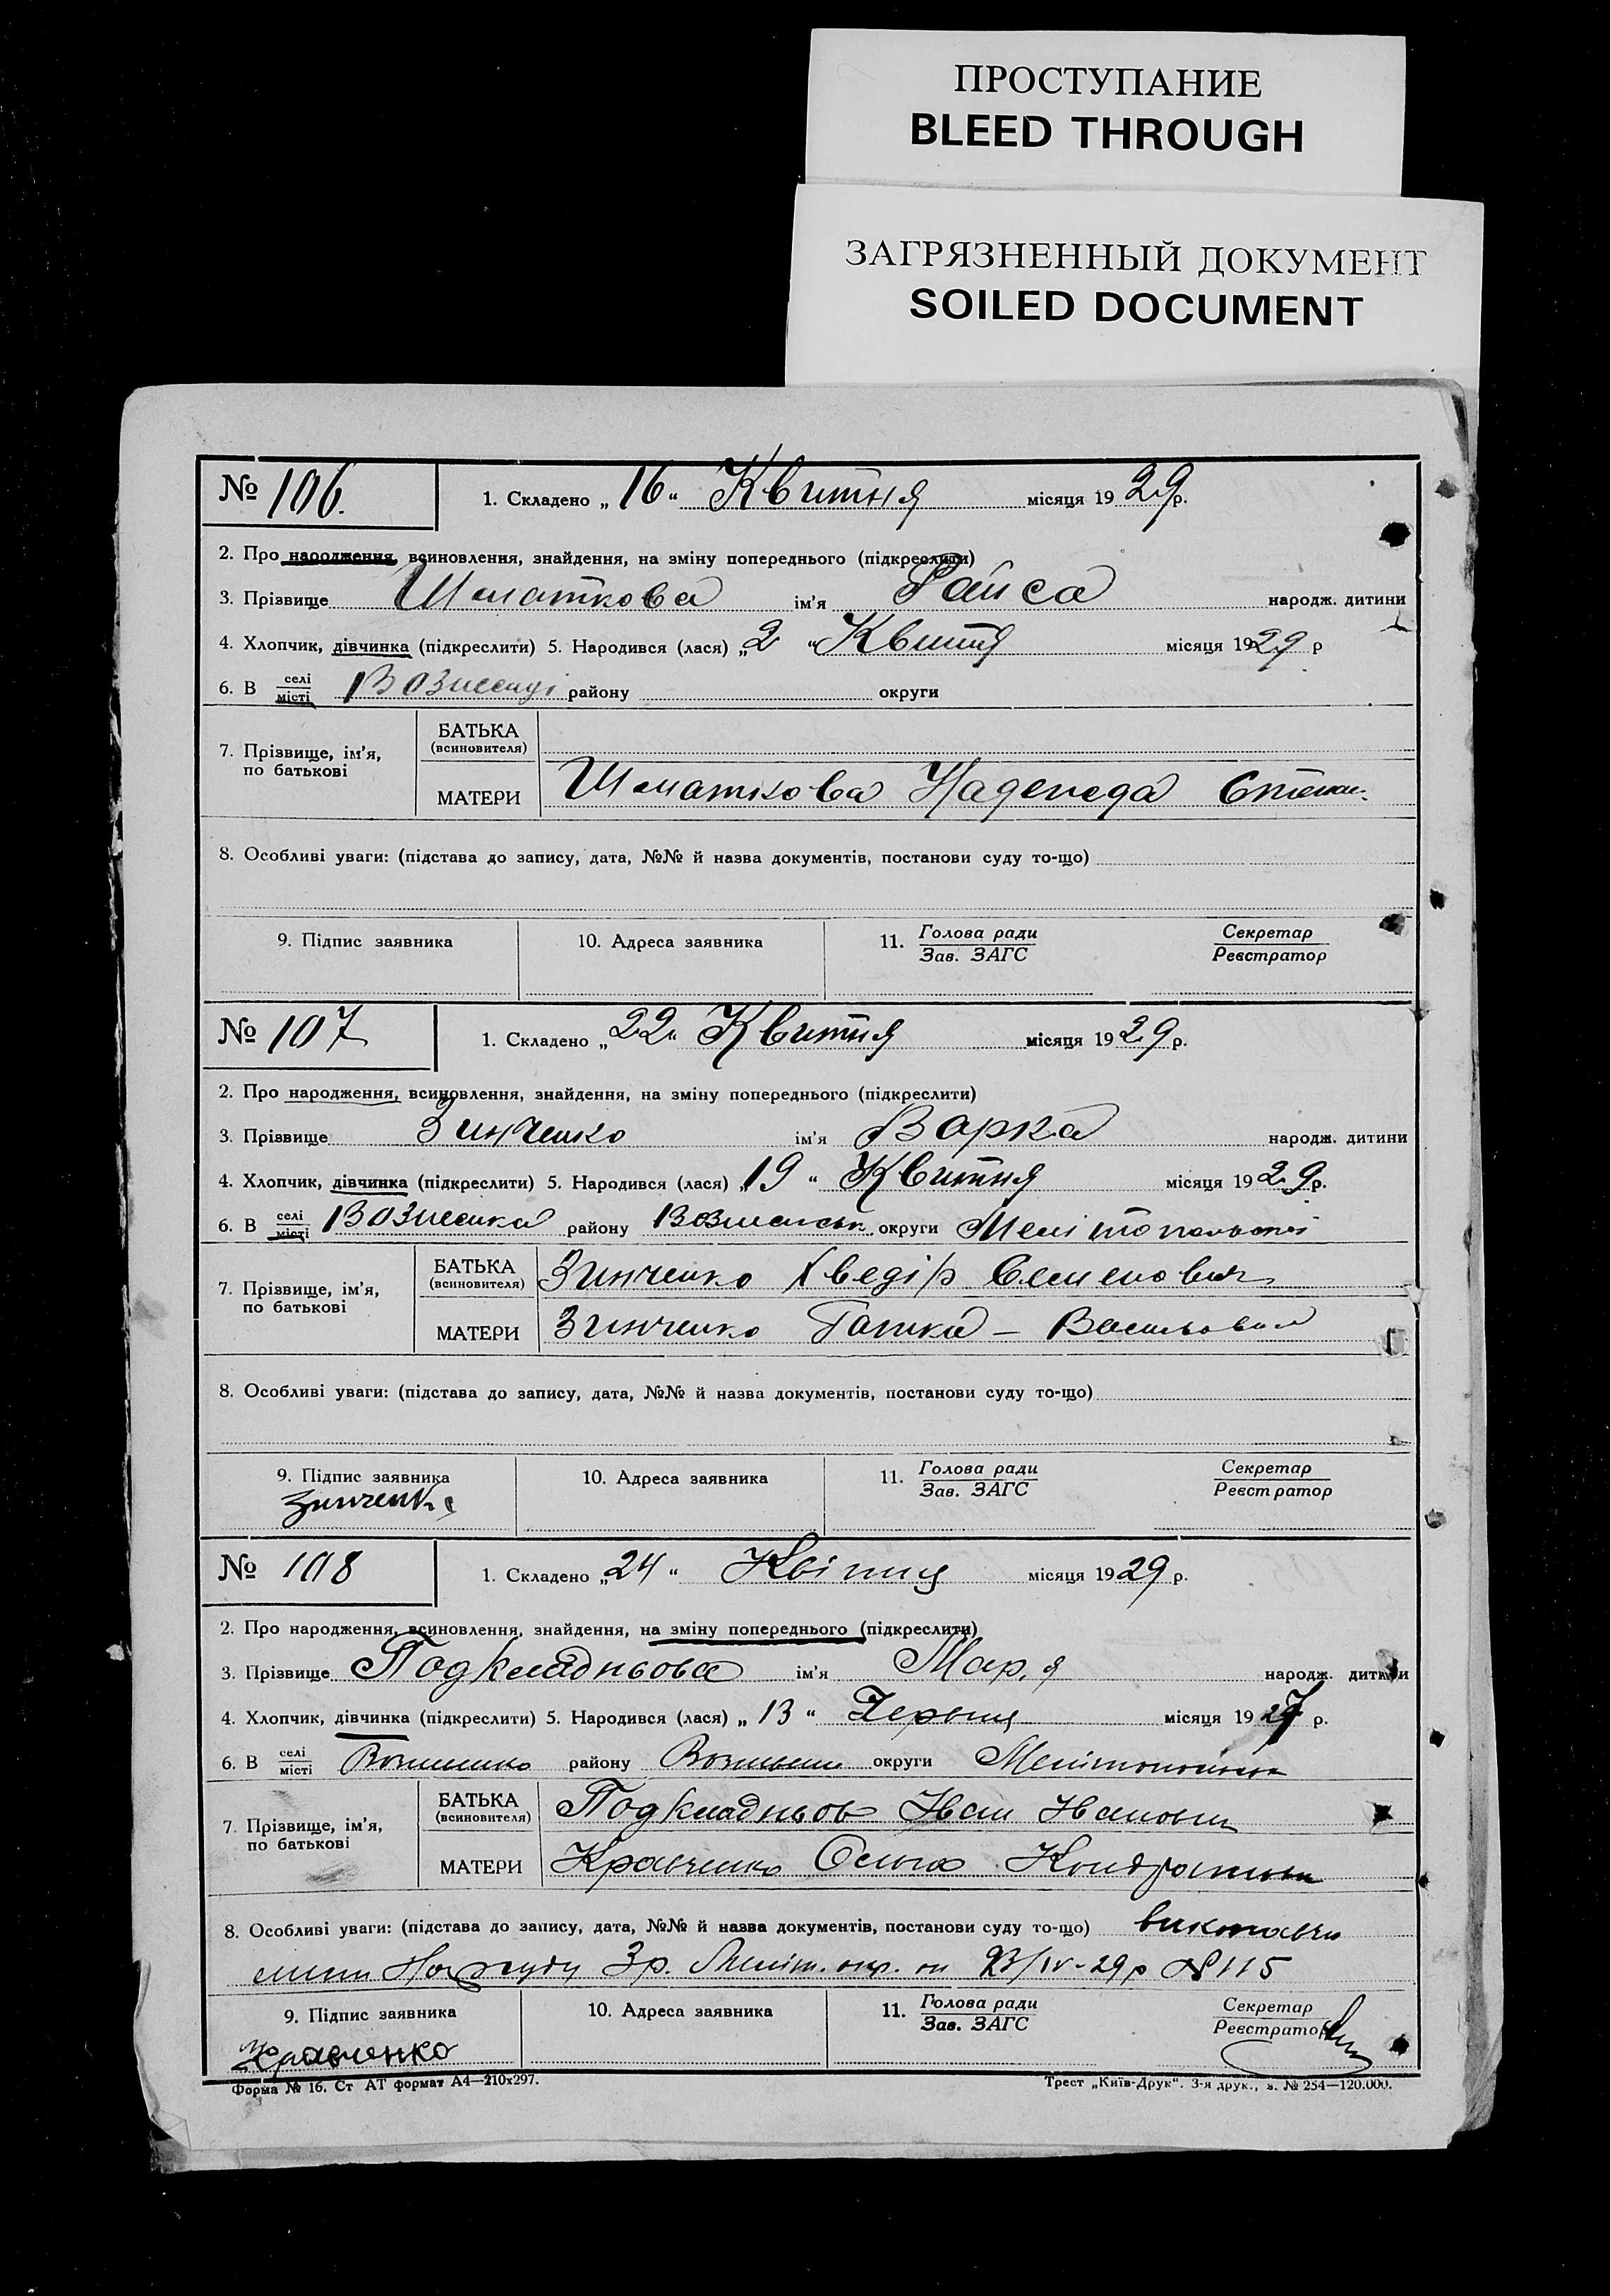 ПРОСТУПАНИЕ
BLEED THROUGH
ЗАГРЯЗНЕННЫЙ ДОКУМЕНТ
SOILED DOCUMENT
№ 106. 1. Складено „16“ Квитня місяця 1929 р.
2. Про народження, всиновлення, знайдення, на зміну попереднього (підкреслити)
3. Прізвище Шматкова ім'я Раиса народж. дитини
4. Хлопчик, дівчинка (підкреслити) 5. Народився (лася) „2“ місяця 1929 р
6. В селі/місті району округи
7. Прізвище, ім'я, по батькові
БАТЬКА (всиновителя)
МАТЕРИ Шматкова Надежда
8. Особливі уваги: (підстава до запису, дата, №№ й назва документів, постанови суду то-що)
9. Підпис заявника 10. Адреса заявника 11. Голова ради/Зав. ЗАГС Секретар/Реєстратор
№ 107 1. Складено „22“ Квитня місяця 1929 р.
2. Про народження, всиновлення, знайдення, на зміну попереднього (підкреслити)
3. Прізвище Зинченко ім'я Варка народж. дитини
4. Хлопчик, дівчинка (підкреслити) 5. Народився (лася) „19“ Квитня місяця 1929 р.
6. В селі/місті Вознесенка району округи
7. Прізвище, ім'я, по батькові
БАТЬКА (всиновителя) Зинченко Хведір Семенович
МАТЕРИ Зинченко Ганка –
8. Особливі уваги: (підстава до запису, дата, №№ й назва документів, постанови суду то-що)
9. Підпис заявника 10. Адреса заявника 11. Голова ради/Зав. ЗАГС Секретар/Реєстратор
Зинченко
№ 108 1. Складено „24“ Квітня місяця 1929 р.
2. Про народження, всиновлення, знайдення, на зміну попереднього (підкреслити)
3. Прізвище Подкладньова ім'я Марія народж. дитини
4. Хлопчик, дівчинка (підкреслити) 5. Народився (лася) „13“ місяця 1927 р.
6. В селі/місті району округи
7. Прізвище, ім'я, по батькові
БАТЬКА (всиновителя) Подкладньов Іван Іванович
МАТЕРИ Кравченко Ольга
8. Особливі уваги: (підстава до запису, дата, №№ й назва документів, постанови суду то-що)
Нарсуду 3 р. Меліт. окр. 23/IV-29 р № 115
9. Підпис заявника 10. Адреса заявника 11. Голова ради/Зав. ЗАГС Секретар/Реєстратор
Кравченко
Форма № 16. Ст АТ формат А4—210х297. Трест „Київ-Друк“. 3-я друк., з. № 254—120.000.